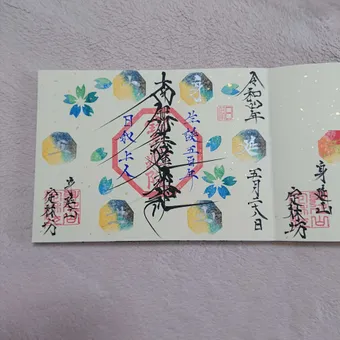 身延山
定林坊
令和四年
五月二八日
生誕五百年
南無妙法蓮華経
日叙上人
身延山
定林坊